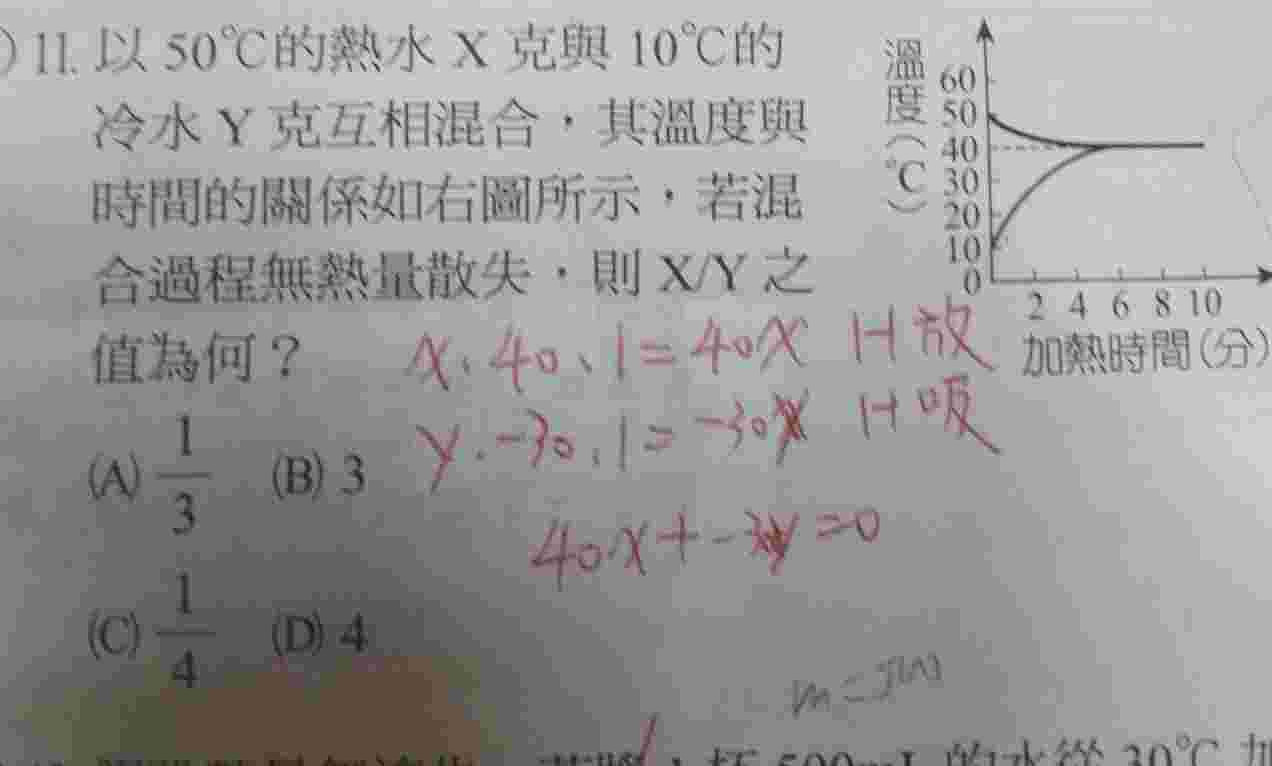 )11. 以50℃的熱水 X 克與 10℃的
冷水 Y 克互相混合，其溫度與
時間的關係如右圖所示，若混
合過程無熱量散失，則 X/Y 之
值為何？
(A) 1/3 (B) 3
(C) 1/4 (D) 4
溫度(℃)
60
50
40
30
20
10
0
2 4 6 8 10
加熱時間(分)
x．40．1=40x H放
y．-30．1=-30 H吸
40x+-3y=0
的水從 30℃ 加